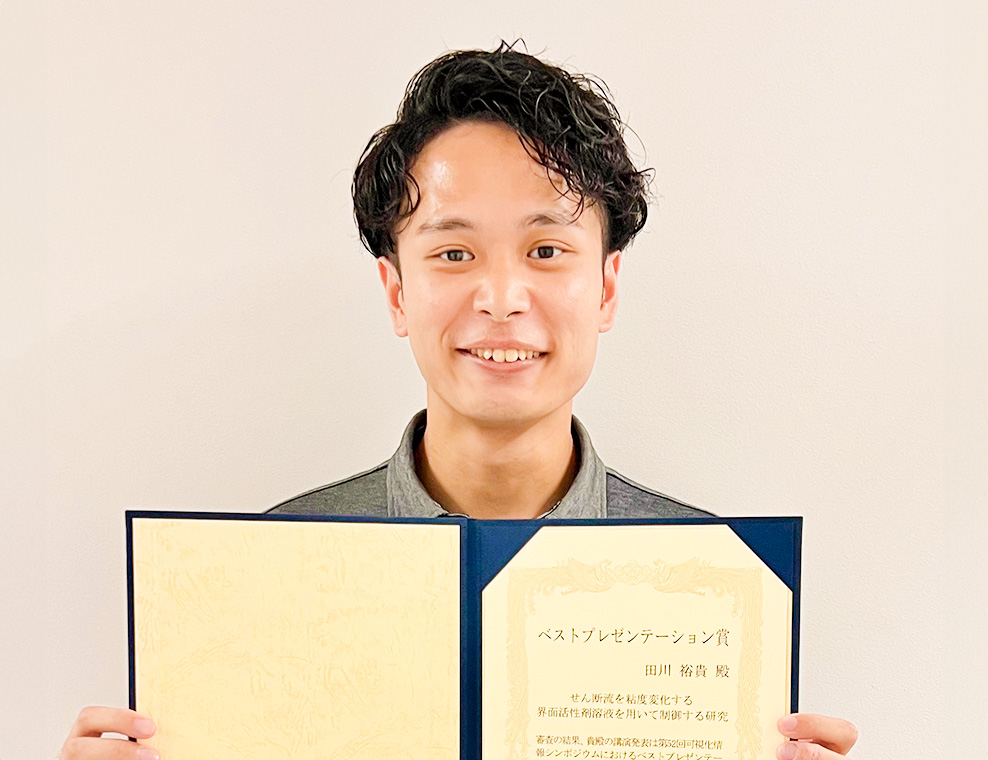 ベストプレゼンテーション賞
田川 裕貴 殿
せん断流を粘度変化する
界面活性剤溶液を用いて制御する研究
審査の結果、貴殿の講演発表は第52回可視化情
報シンポジウムにおけるベストプレゼンテー